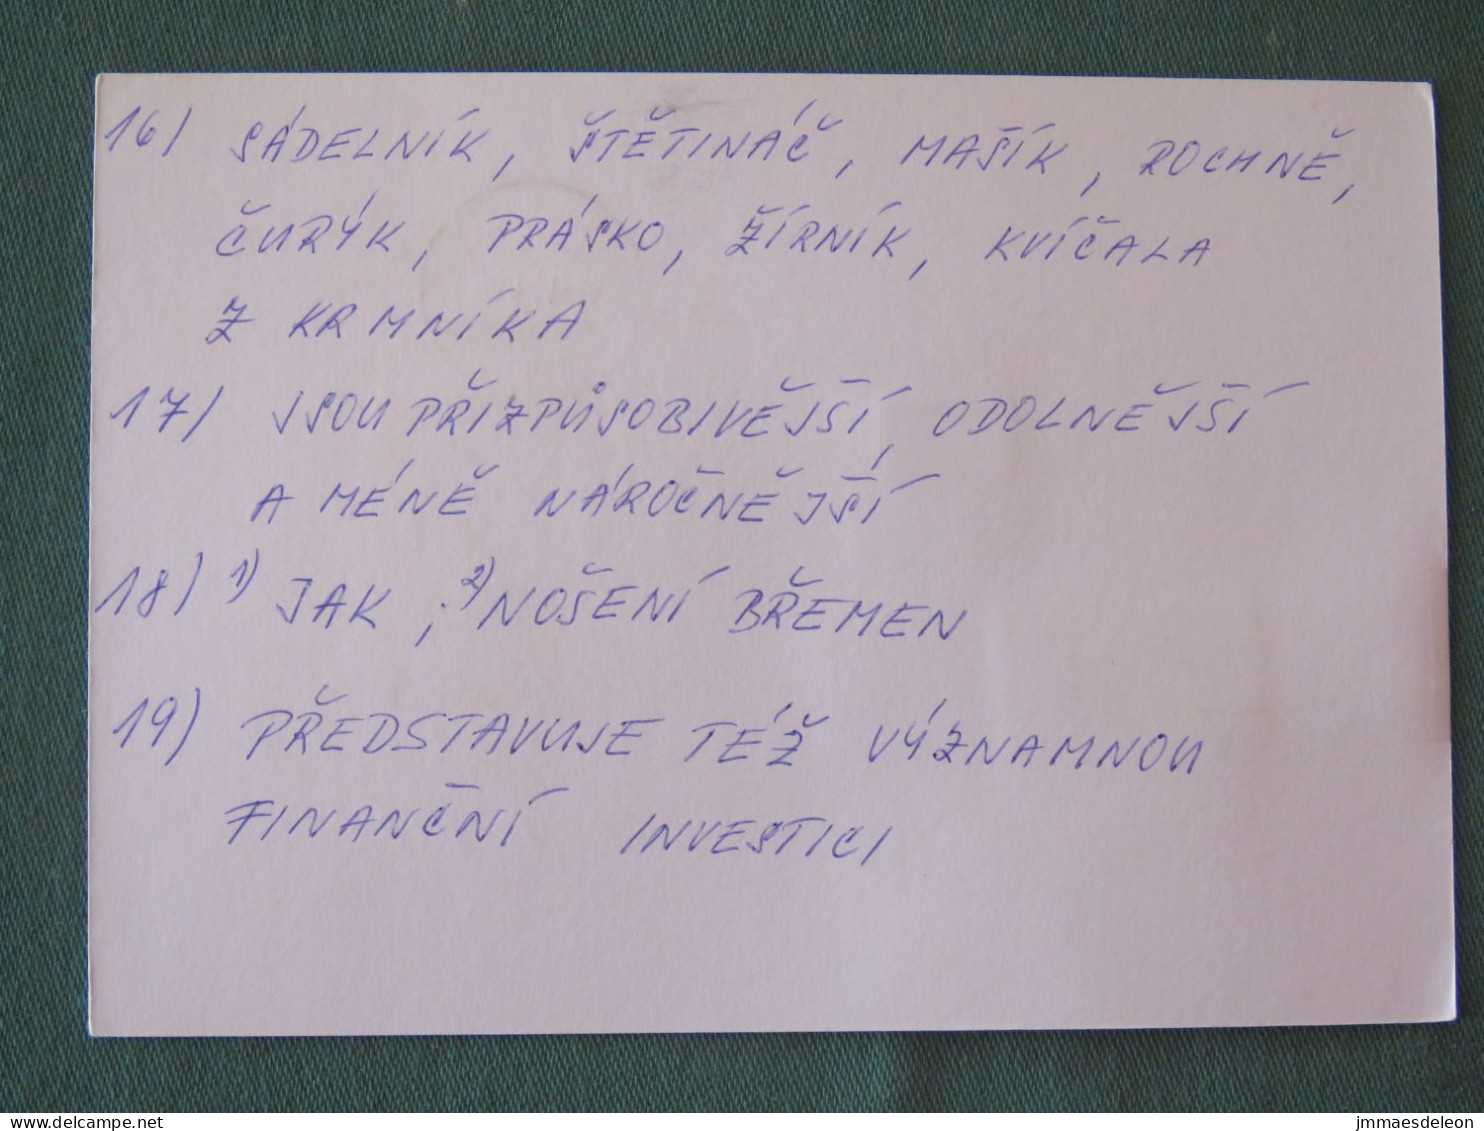 16) SÁDELNÍK, ŠTĚTINÁČ, MAŠÍK, ROCHNĚ,
ČURÝK, PRÁSKO, ŽÍRNÍK, KVÍČALA
Z KRMNÍKA
17) JSOU PŘIZPŮSOBIVĚJŠÍ, ODOLNĚJŠÍ
A MÉNĚ NÁROČNĚJŠÍ
18) 1) JAK ; 2) NOŠENÍ BŘEMEN
19) PŘEDSTAVUJE TÉŽ VÝZNAMNOU
FINANČNÍ INVESTICI
delcampe.net
jmmaesdeleon